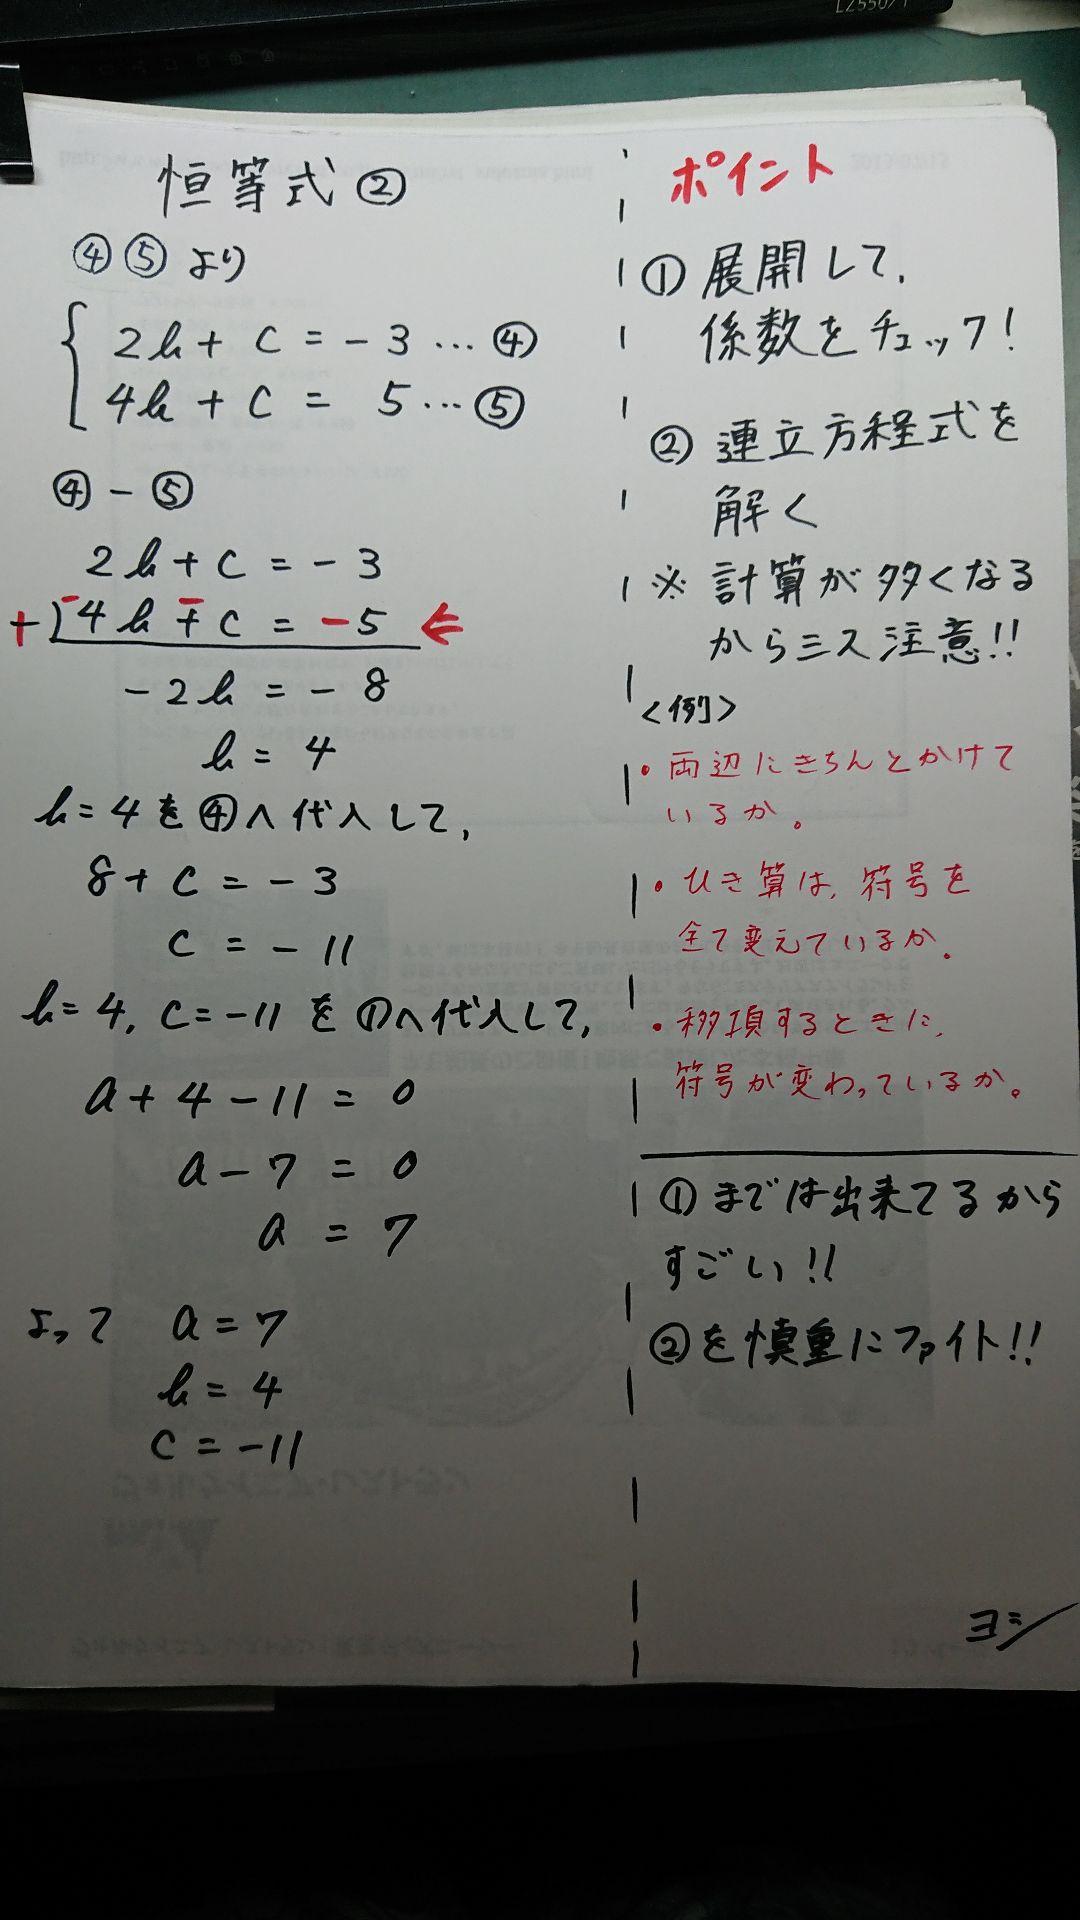 恒等式②
④⑤より
2b + c = -3 … ④
4b + c = 5 … ⑤
④ - ⑤
2b + c = -3
+) -4b - c = -5 ⇐
-2b = -8
b = 4
b=4を④へ代入して,
8 + c = -3
c = -11
b=4, c=-11を①へ代入して,
a + 4 - 11 = 0
a - 7 = 0
a = 7
よって a = 7
b = 4
c = -11
ポイント
①展開して,
係数をチェック!
②連立方程式を
解く
※計算が多くなる
からミス注意!!
<例>
・両辺にきちんとかけて
いるか。
・ひき算は,符号を
全て変えているか。
・移項するときに,
符号が変わっているか。
①までは出来てるから
すごい!!
②を慎重にファイト!!